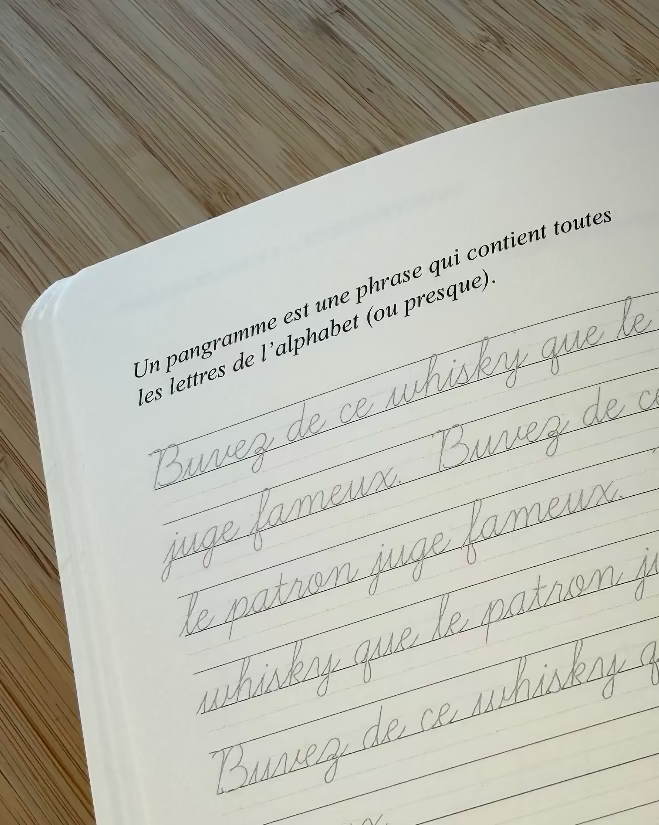 Un pangramme est une phrase qui contient toutes
les lettres de l'alphabet (ou presque).
Buvez de ce whisky que le
juge fameux. Buvez de ce
le patron juge fameux.
whisky que le patron ju
Buvez de ce whisky q